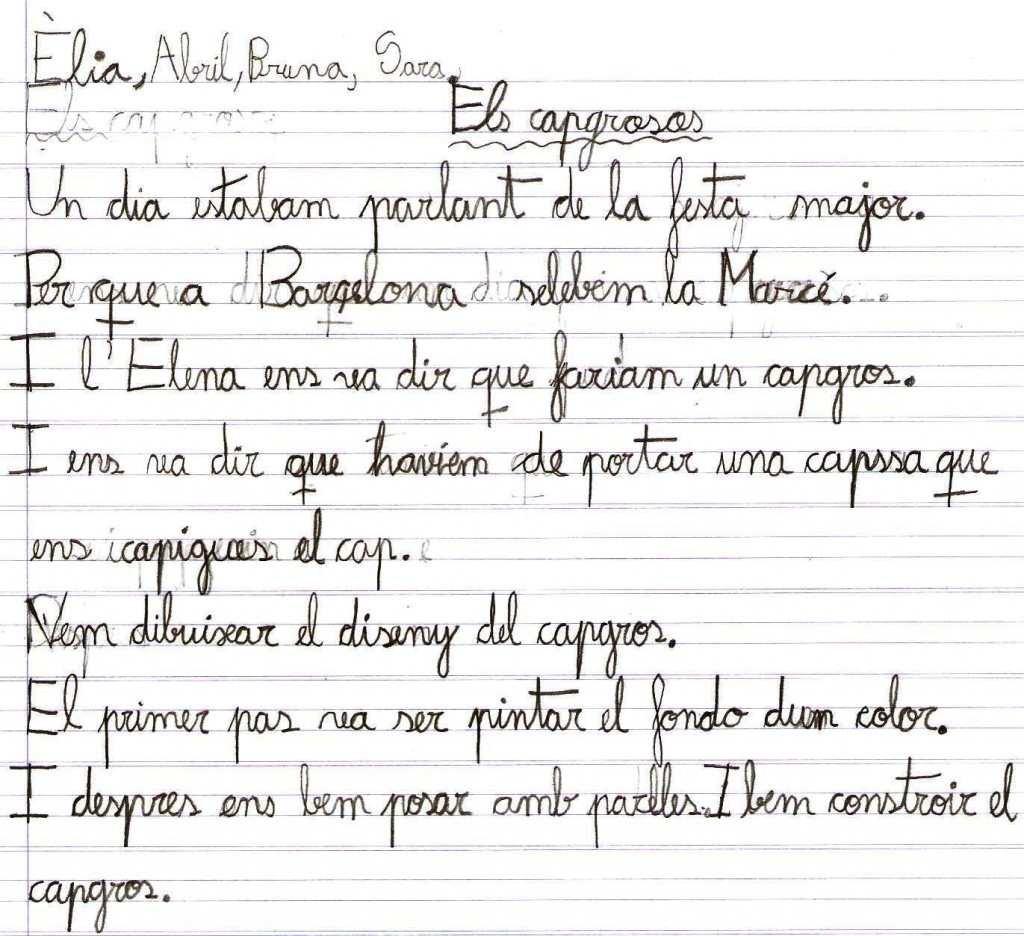 Èlia, Abril, Bruna, Sara.
Els capgrosos
Un dia estabam parlant de la festa major.
Perque a Barqelona selebrem la Marcé.
I l'Elena ens va dir que fariam un capgros.
I ens va dir que haviem de portar una capssa que
ens capigues el cap.
Vem dibuixar el diseny del capgros.
El primer pas va ser pintar el fondo dum color.
I despres ens bem posar amb parelles. I bem constroir el
capgros.